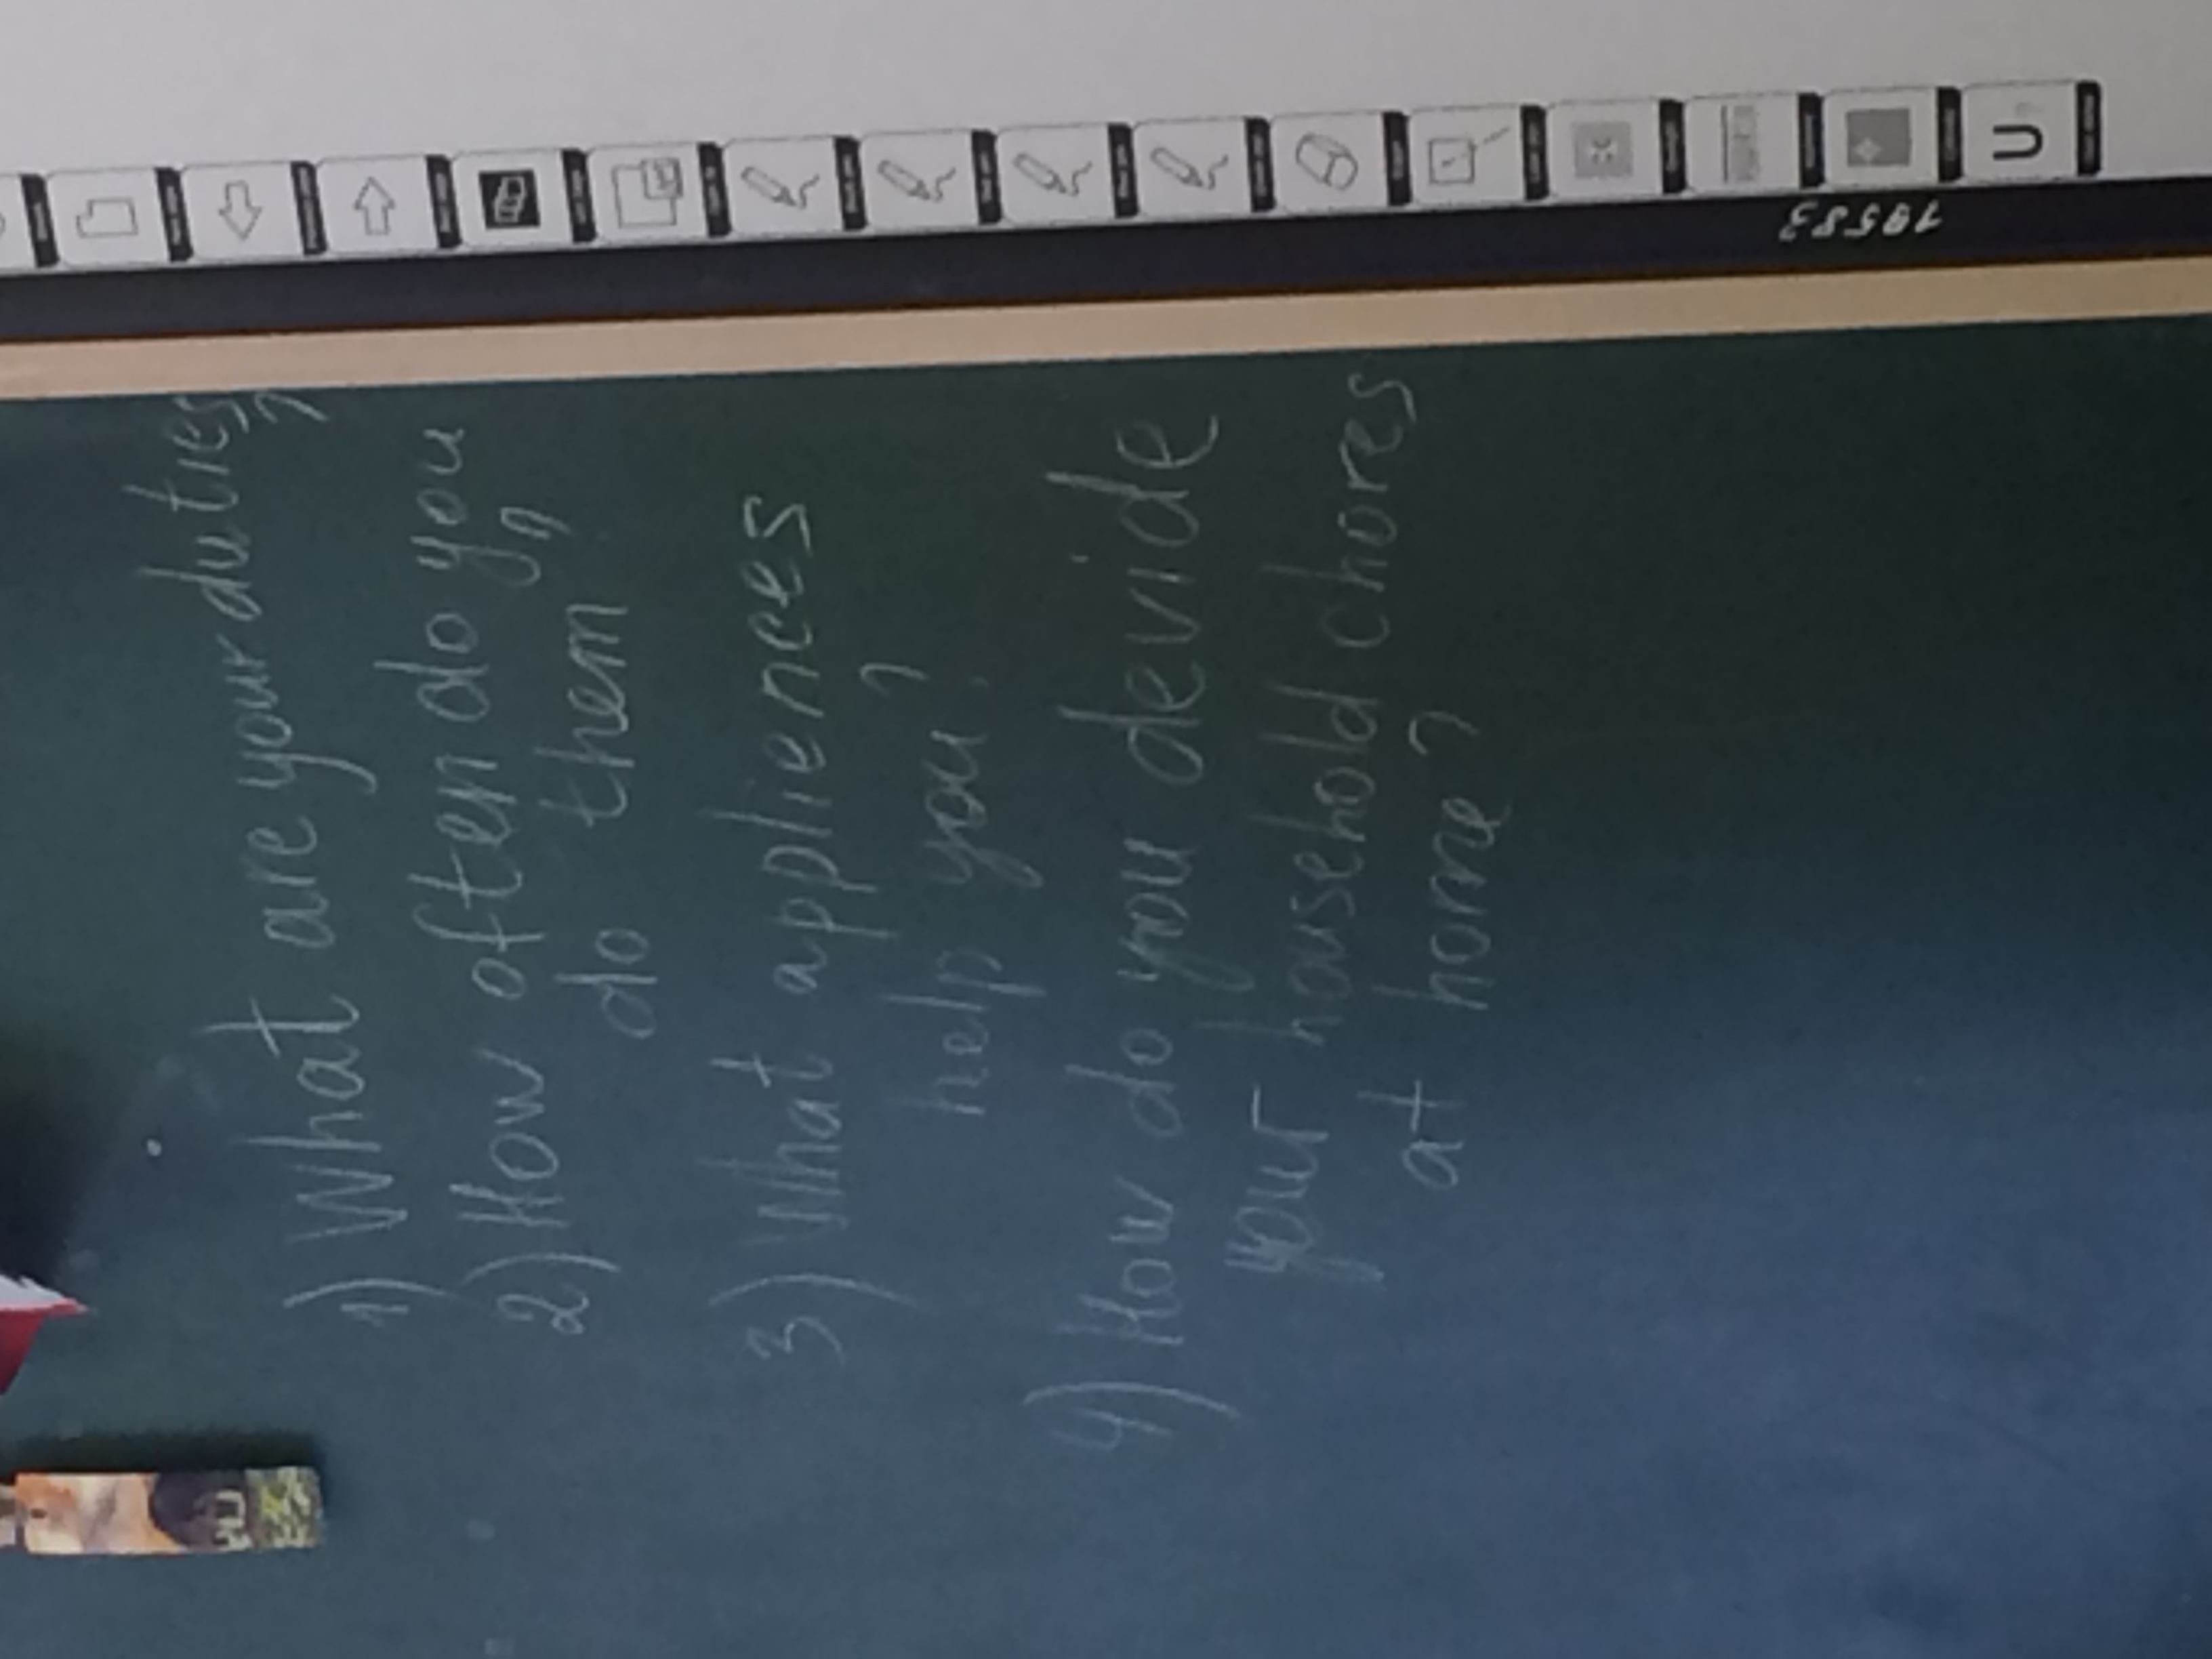 1) What are your duties?
2) How often do you
do them?
3) What appliences
help you?
4) How do you devide
your household chores
at home?
18583